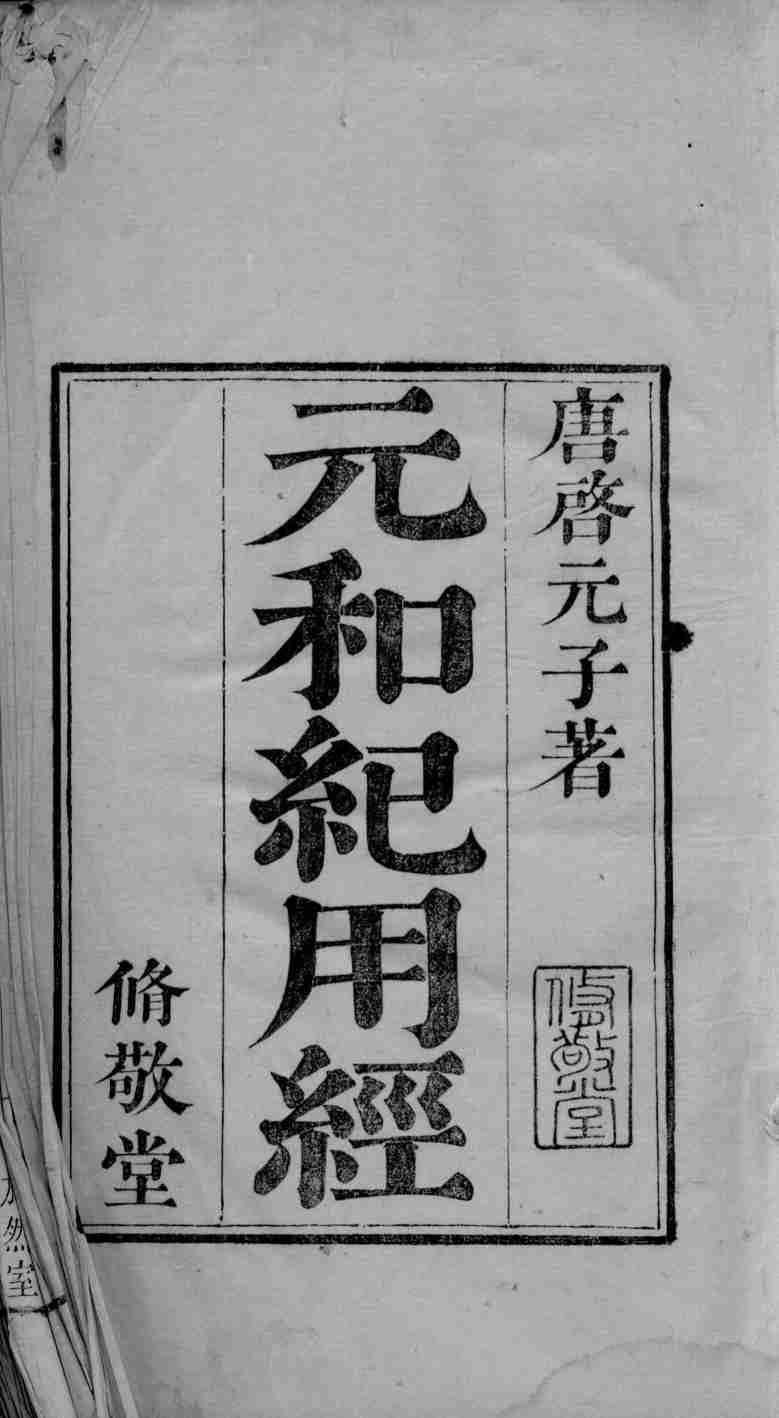 唐啓元子著
修敬堂
元和紀用經
脩敬堂
然室